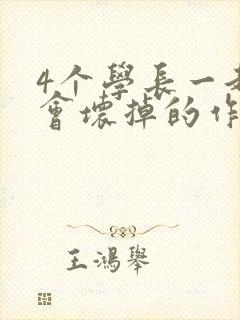 4个學長一
會壞掉的作
王鴻舉